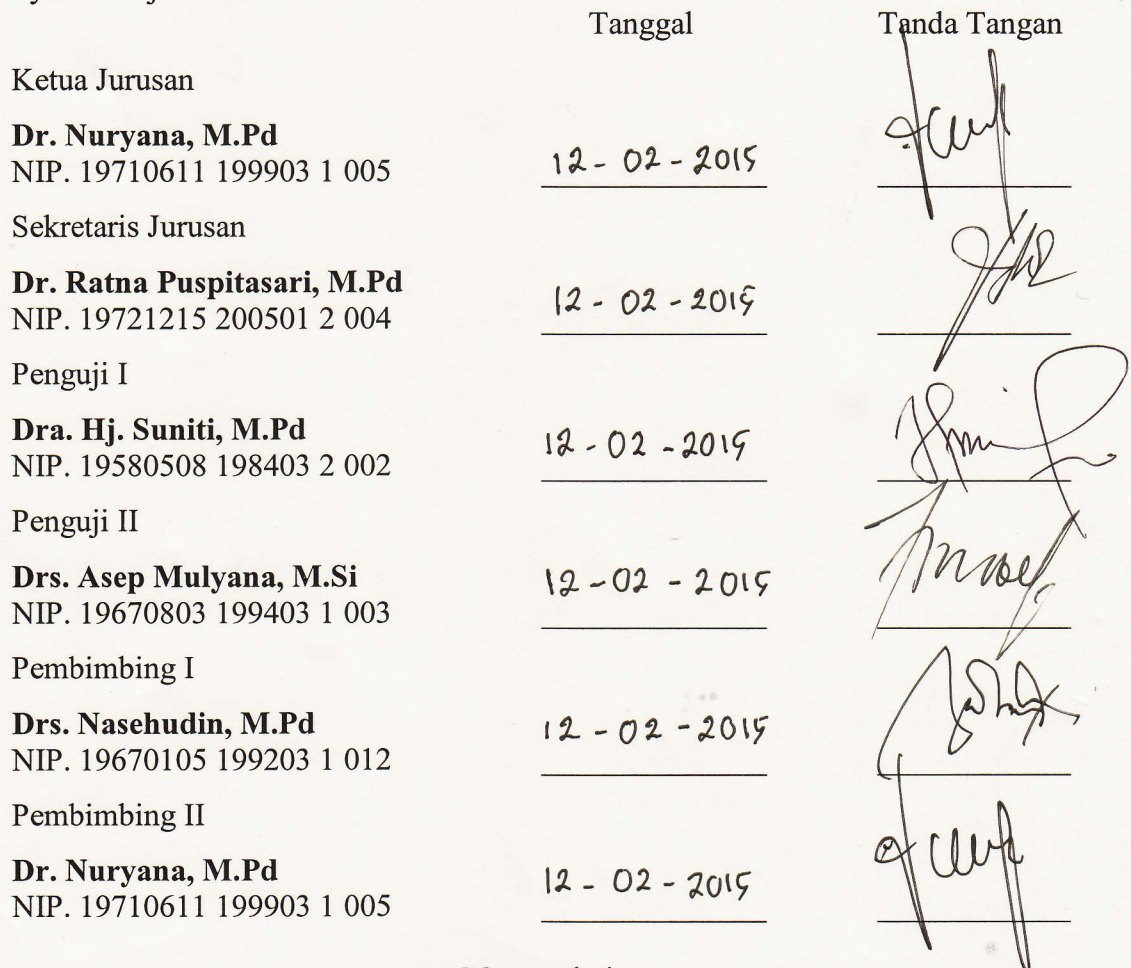 Tanggal Tanda Tangan
Ketua Jurusan
Dr. Nuryana, M.Pd
NIP. 19710611 199903 1 005 12 - 02 - 2015
Sekretaris Jurusan
Dr. Ratna Puspitasari, M.Pd
NIP. 19721215 200501 2 004 12 - 02 - 2015
Penguji I
Dra. Hj. Suniti, M.Pd
NIP. 19580508 198403 2 002 12 - 02 - 2015
Penguji II
Drs. Asep Mulyana, M.Si
NIP. 19670803 199403 1 003 12 - 02 - 2015
Pembimbing I
Drs. Nasehudin, M.Pd
NIP. 19670105 199203 1 012 12 - 02 - 2015
Pembimbing II
Dr. Nuryana, M.Pd
NIP. 19710611 199903 1 005 12 - 02 - 2015